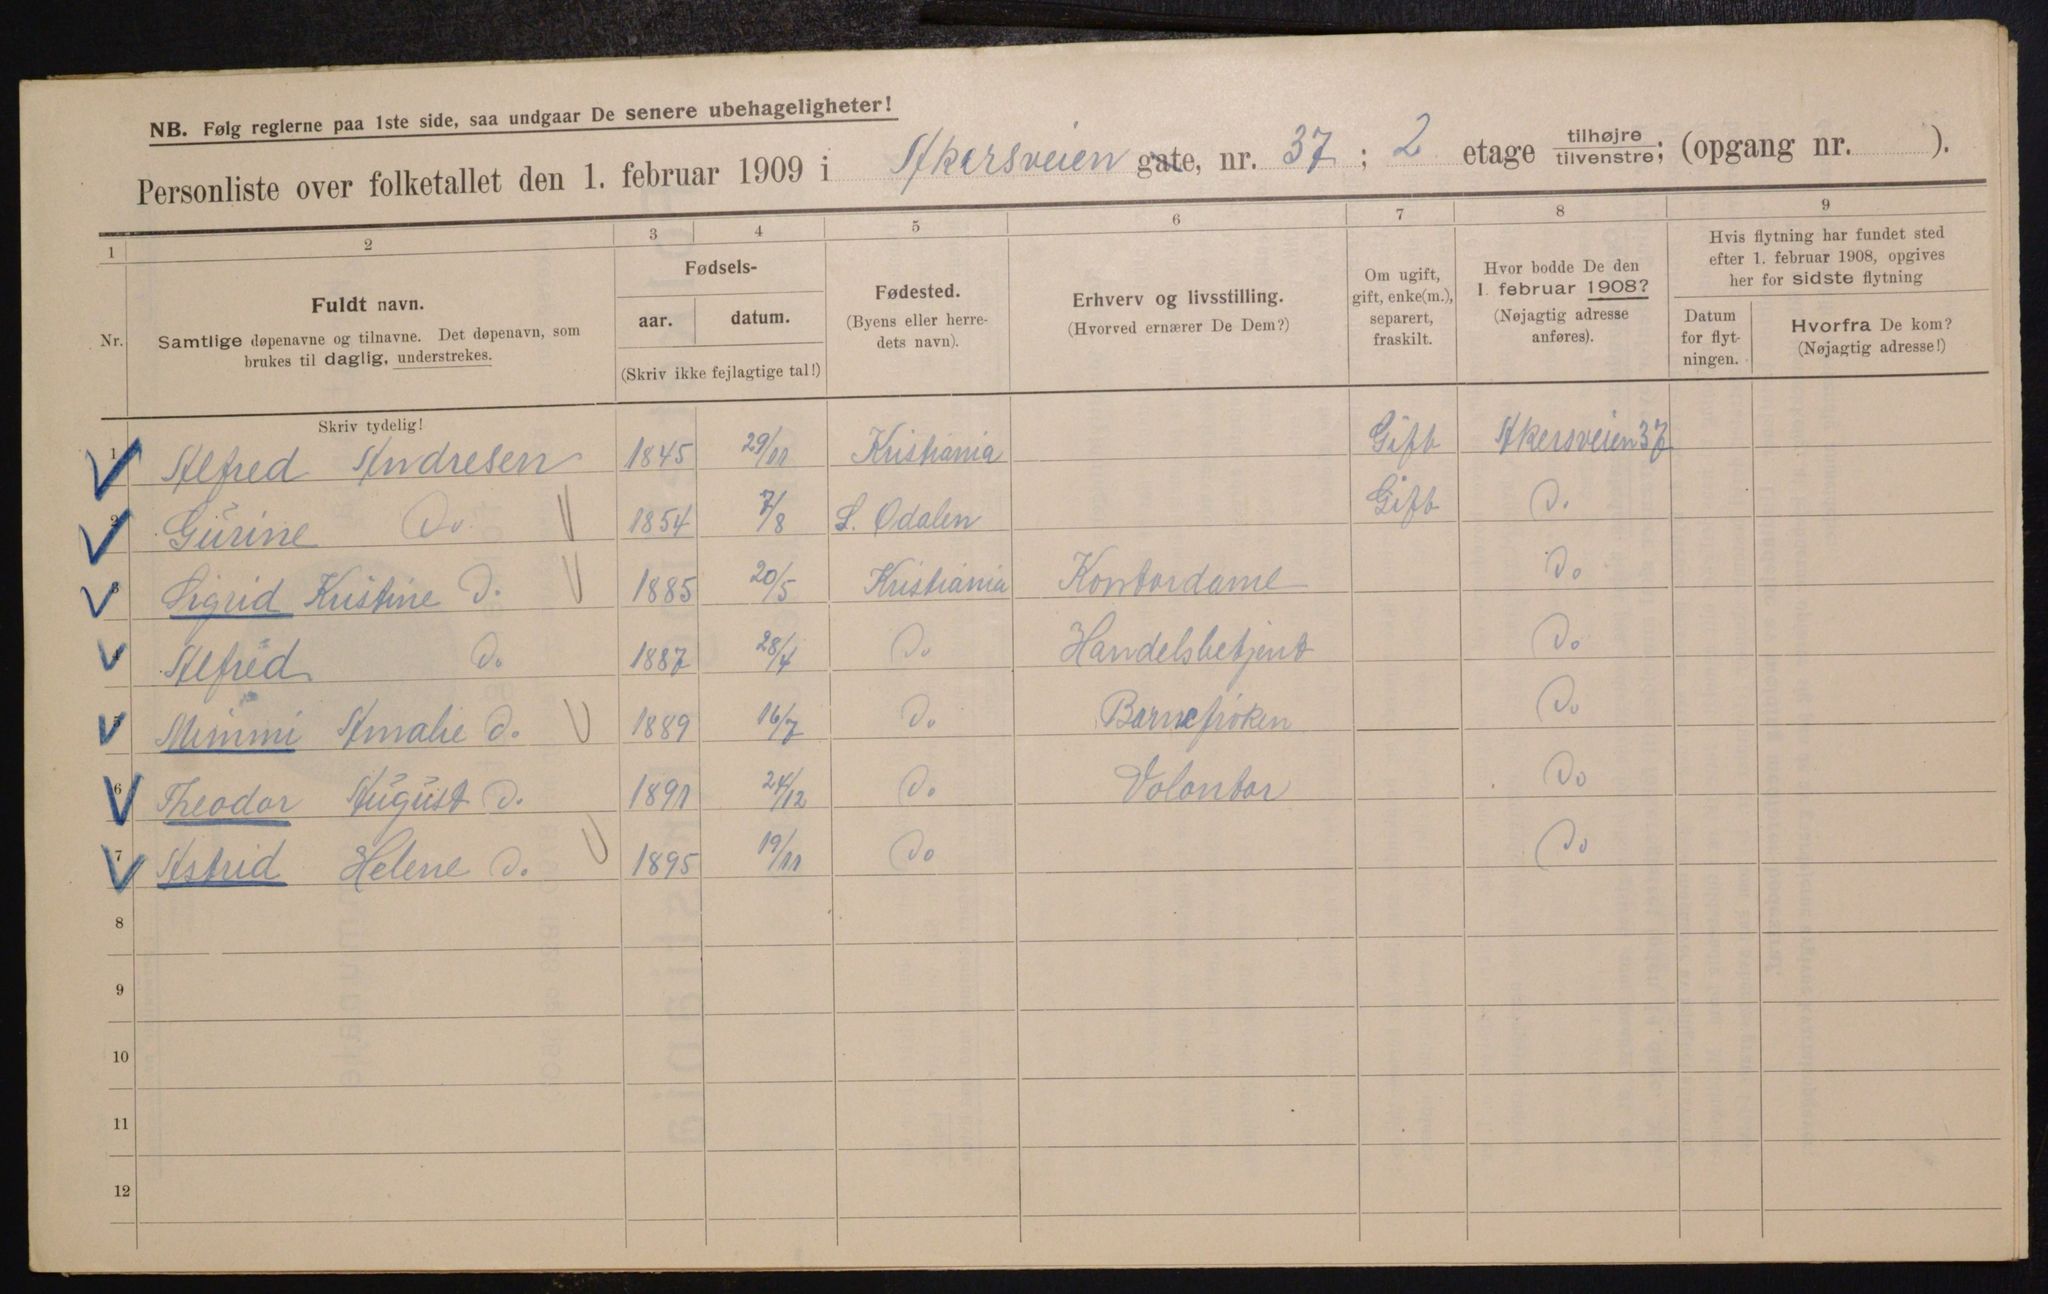 NB. Følg reglerne paa 1ste side, saa undgaar De senere ubehageligheter!
Personliste over folketallet den 1. februar 1909 i Akersveien gate, nr. 37; 2 etage tilhøjre/tilvenstre; (opgang nr. ).
1 2 3 4 5 6 7 8 9
Nr.
Fuldt navn.
Samtlige døpenavne og tilnavne. Det døpenavn, som
brukes til daglig, understrekes.
Fødsels-
aar. datum.
(Skriv ikke fejlagtige tal!)
Fødested.
(Byens eller herre-
dets navn).
Erhverv og livsstilling.
(Hvorved ernærer De Dem?)
Om ugift,
gift, enke(m.),
separert,
fraskilt.
Hvor bodde De den
1. februar 1908?
(Nøjagtig adresse
anføres).
Hvis flytning har fundet sted
efter 1. februar 1908, opgives
her for sidste flytning
Datum
for flyt-
ningen.
Hvorfra De kom?
(Nøjagtig adresse!)
Skriv tydelig!
1 Alfred Andresen 1845 29/11 Kristiania Gift Akersveien 37
2 Gurine Do. 1854 7/8 S. Odalen Gift Do.
3 Sigrid Kristine Do. 1885 20/5 Kristiania Kontordame Do
4 Alfred Do 1887 28/4 Do Handelsbetjent Do
5 Mimmi Amalie Do. 1889 16/7 Do Barnefrøken Do
6 Theodor August Do. 1891 24/12 Do Volontør Do
7 Astrid Helene Do. 1895 19/11 Do Do
8
9
10
11
12